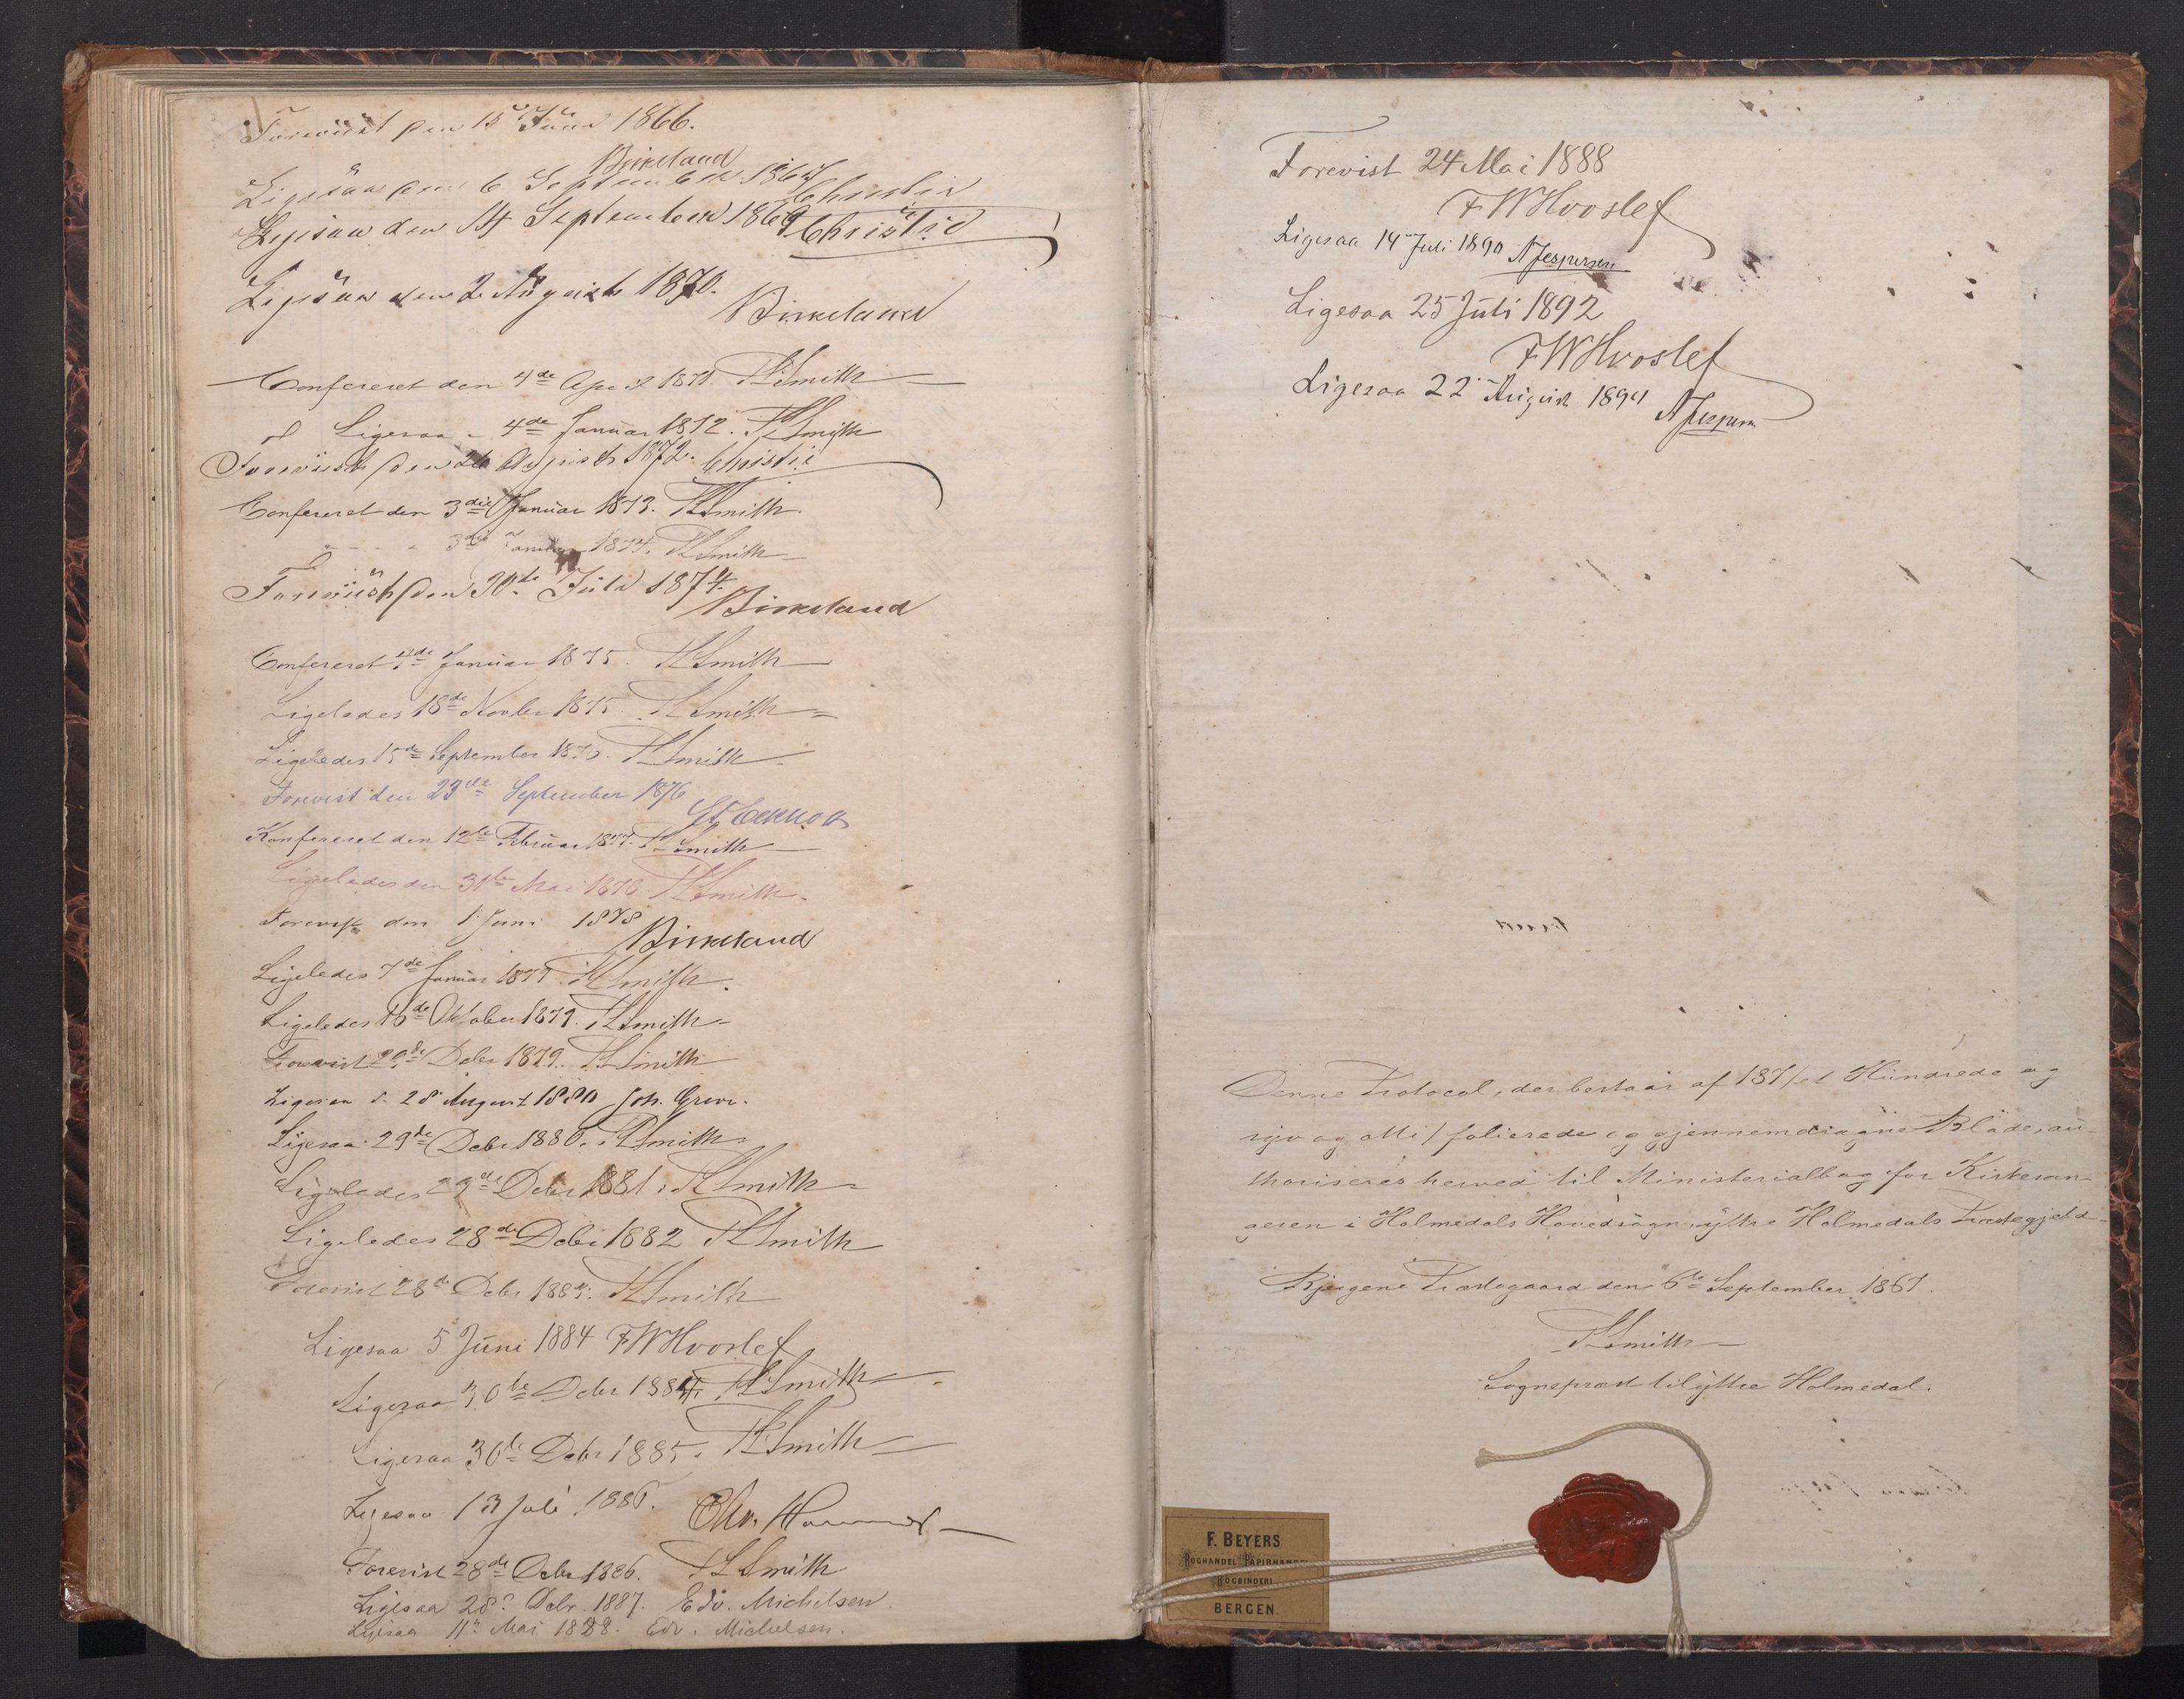 Foreviist den 15 Juni 1866.
Birkeland
Ligesaa den 6 September 1867 Christie
Ligesaa den 14 September 1869 Christie
Ligesaa den 2 August 1870.
Birkeland
Confereret den 4de April 1871. FLSmith
Ligesaa - 4de Januar 1872. FLSmith
Foreviist den August 1872. Christie
Confereret den 3die Januar 1873. FLSmith.
- - - - 3die Januar 1874. FLSmith
Foreviist den 30te Juli 1874.
Birkeland
Confereret Januar 1875. FLSmith
Ligeledes 18de Novbr 1875. FLSmith
Ligeledes 15de September 1876. FLSmith
Forevist den 23de September 1876
Konfereret den 12te Februar 1877. FLSmith
Ligeledes den 31te Mai 1878. FLSmith.
Forevist den 1 Juni 1878
Birkeland
Ligeledes 7de Januar 1879. FLSmith.
Ligeledes 16de Oktober 1879. FLSmith
Forevist 29de Debr 1879. FLSmith
Ligesaa d. 28 August 1880 Joh. Greve.
Ligesaa 29de Debr 1880. FLSmith
Ligeledes 29de Debr 1881. FLSmith
Ligeledes 28de Debr 1882 FLSmith
Forevist 28de Debr 1883. FLSmith
Ligesaa 5 Juni 1884 FWHvoslef
Ligesaa 30te Debr 1884. FLSmith
Ligesaa 30te Debr 1885. FLSmith
Ligesaa 13 Juli 1886. Chr.
Forevist 28de Debr 1886. FLSmith
Ligesaa 28de Debr. 1887. Edv. Michelsen
Ligesaa 11te Mai 1888. Edv. Michelsen.
Forevist 24 Mai 1888
FWHvoslef
Ligesaa 14 Juli 1890 NJespersen
Ligesaa 25 Juli 1892
FWHvoslef
Ligesaa 22 August 1894 NJespersen
Denne Protocol, der bestaar af 187/et Hundrede og
syv og otti/ folierede og gjennemdragne Blade, au-
thoriseres herved til Ministerialbog for Kirkesan-
geren i Holmedals Hovedsogn, yttre Holmedals Præstegjeld.
Bjergene Præstegaard den 6te September 1861.
FLSmith
Sognepræst til yttre Holmedal.
F. BEYERS
BOGHANDEL PAPIRHANDEL
BOGBINDERI
BERGEN.